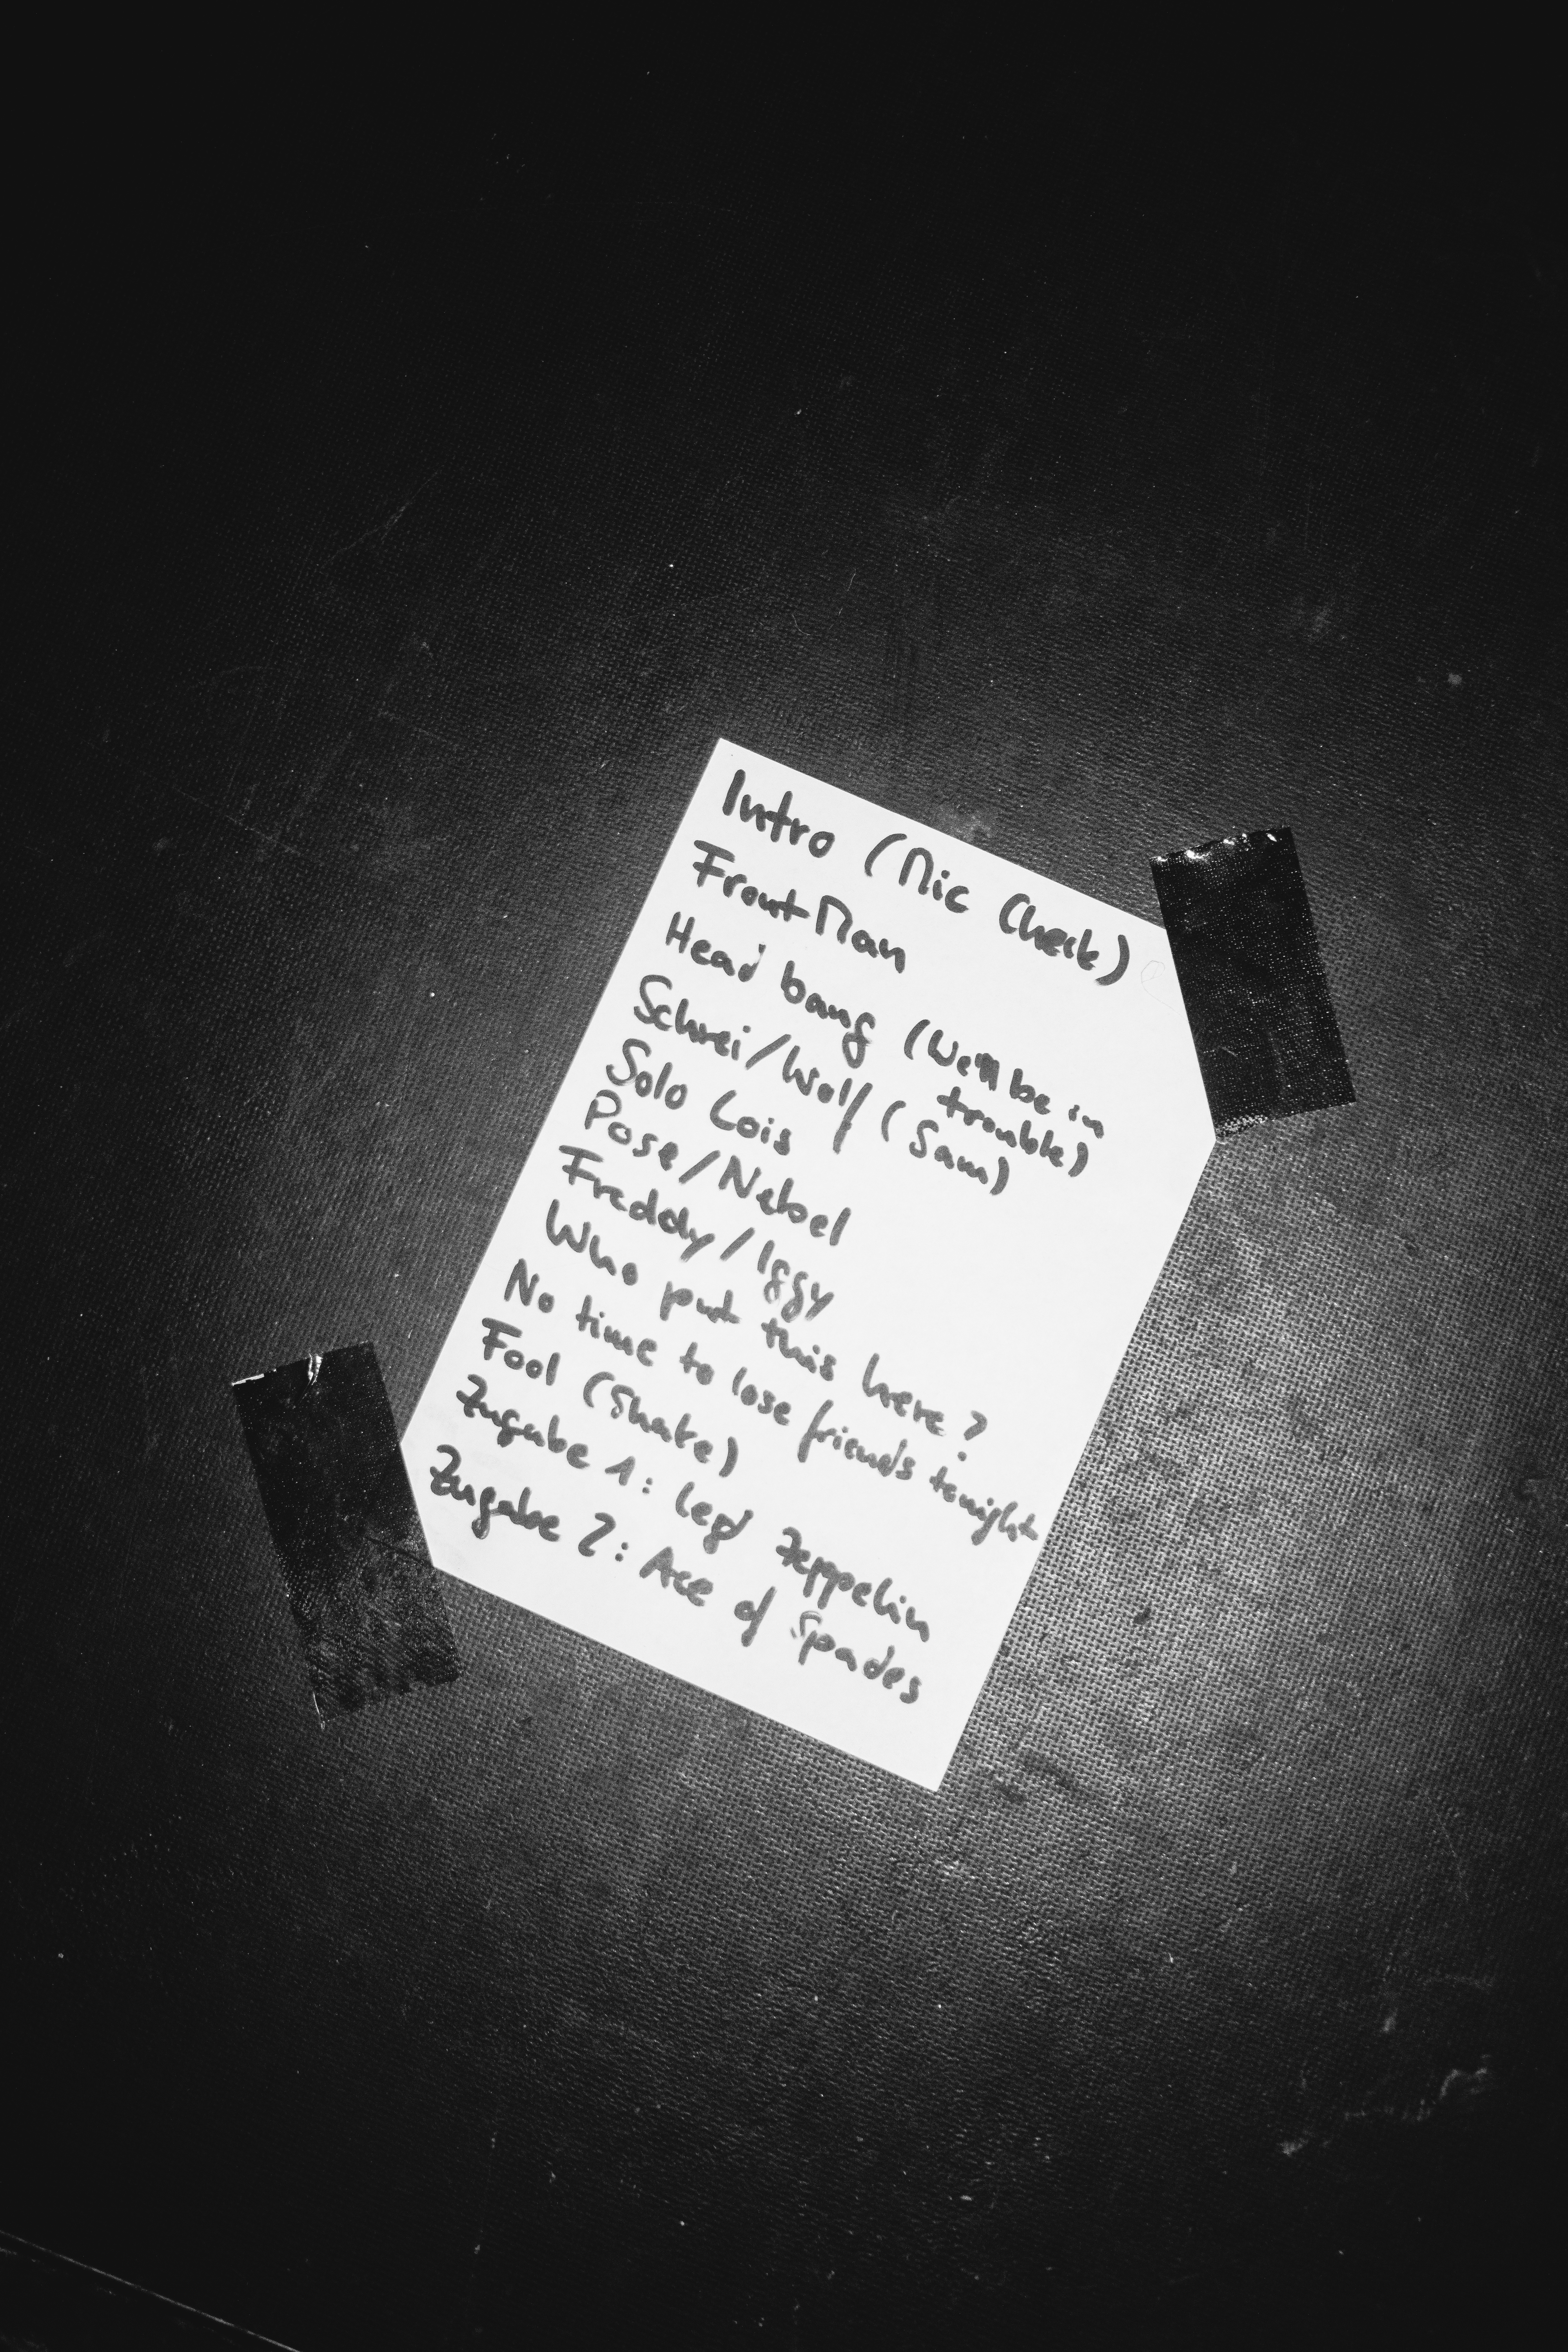 Intro (Mic Check)
Front Man
Head bang (We'll be in
trouble)
Schrei/Wolf (Sam)
Solo Lois
Pose/Nebel
Freddy/Iggy
Who put this here?
No time to lose friends tonight
Fool (Shake)
Zugabe 1: Led Zeppelin
Zugabe 2: Ace of Spades